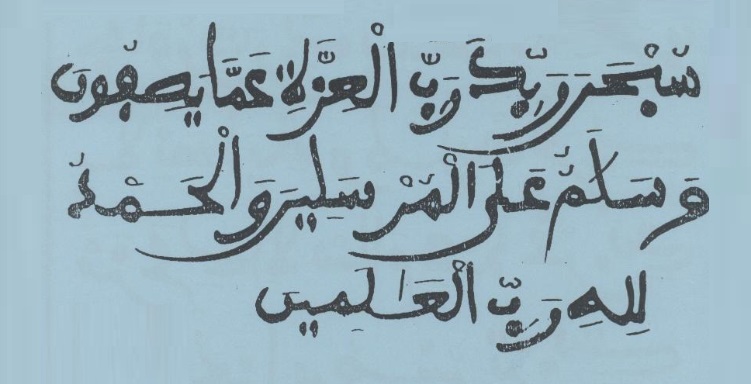 سُبْحَنَ رَبِّكَ رَبِّ الْعِزَّةِ عَمَّا يَصِفُونَ
وَسَلَمٌ عَلَى الْمُرْسَلِينَ وَالْحَمْدُ
لِلهِ رَبِّ الْعَالَمِينَ